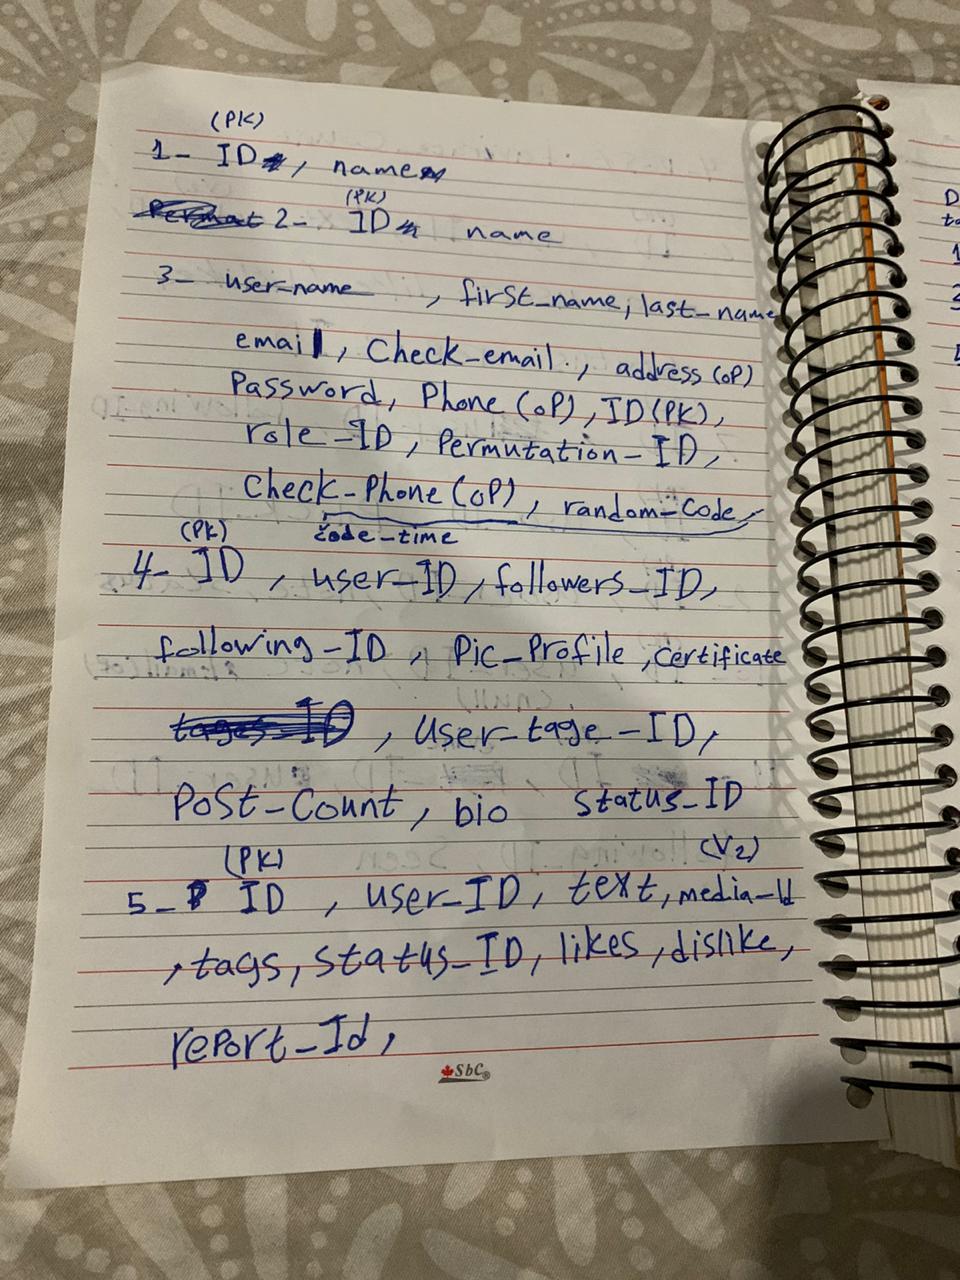 (PK)
1- ID, name
(PK)
2- ID name
3- user-name, first_name, last_name
email, Check-email., address (oP)
Password, Phone (oP), ID (PK),
role-ID, Permutation-ID,
Check-Phone (oP), random-Code
(PK) code-time
4- ID, user-ID, followers_ID,
following-ID, Pic-Profile, certificate
tages-ID, User-tage-ID,
Post-Count, bio status_ID
(PK) (V2)
5- ID, user_ID, text, media-Id
, tags, status_ID, likes, dislike,
report_Id,
SbC
D
ta
1